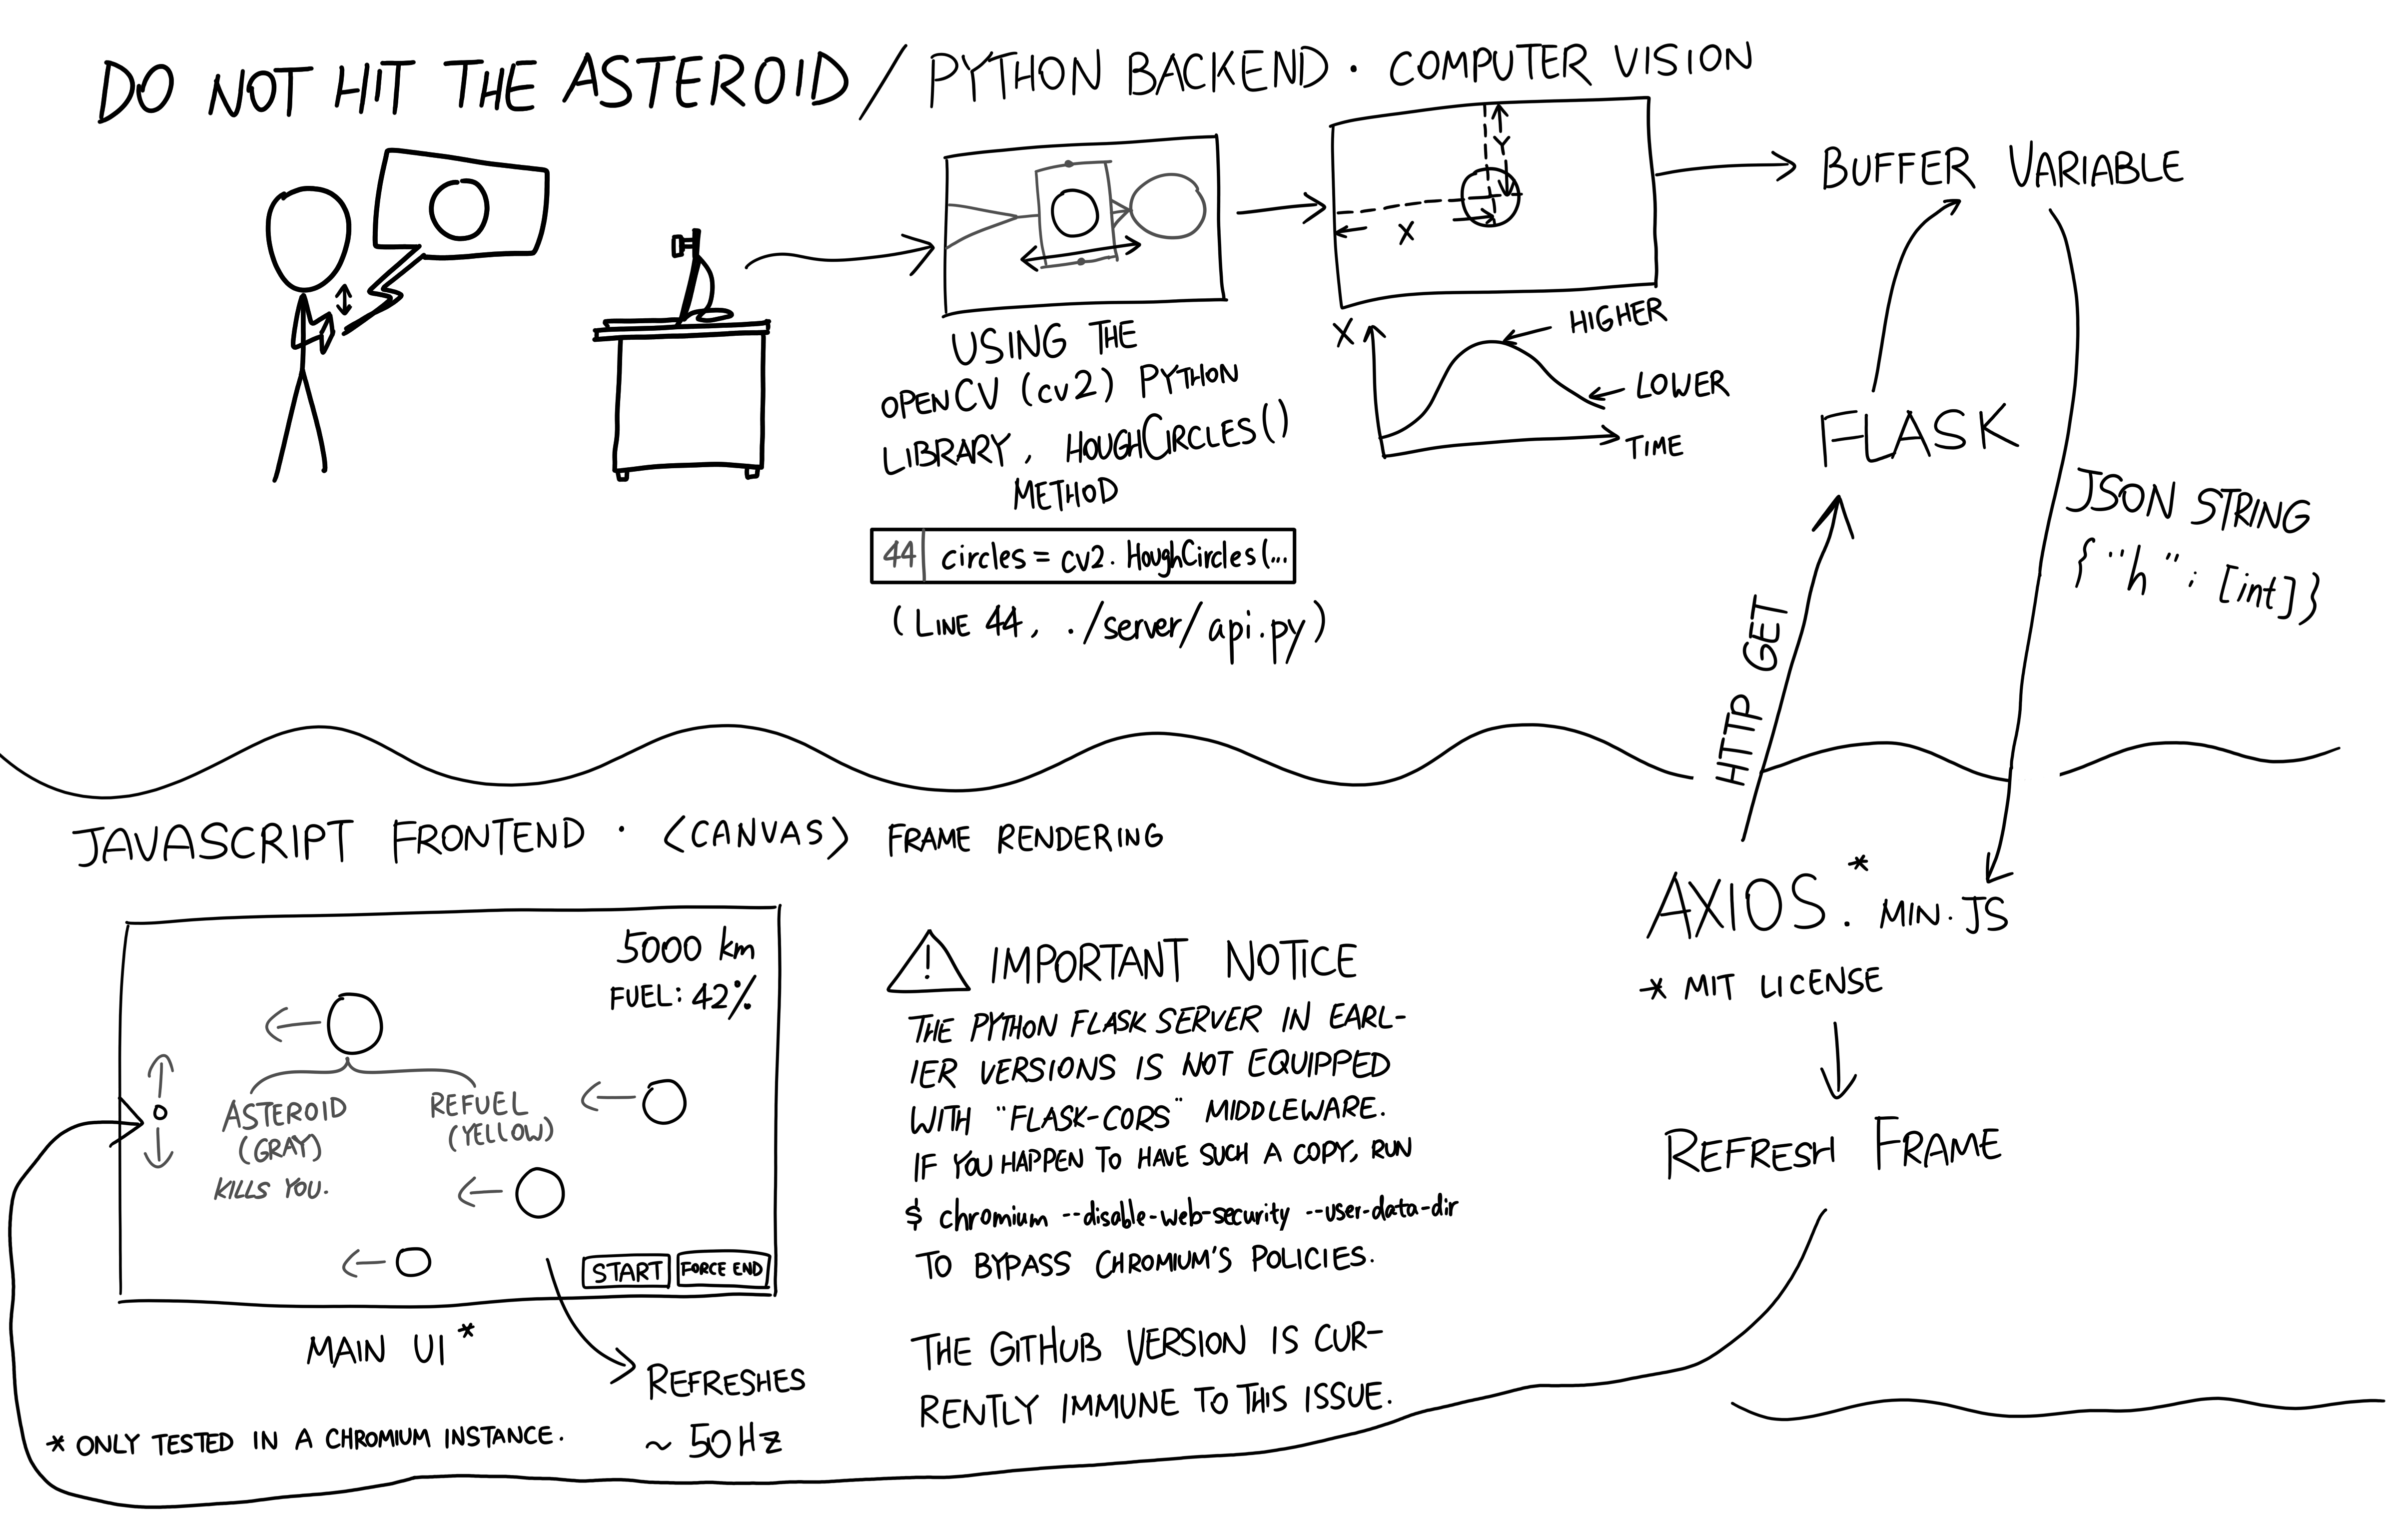 DO NOT HIT THE ASTEROID / PYTHON BACKEND · COMPUTER VISION
Y
X
USING THE
OPENCV (cv2) PYTHON
LIBRARY, HOUGHCIRCLES()
METHOD
44 circles = cv2.HoughCircles(...
(LINE 44, ./server/api.py)
X
HIGHER
LOWER
TIME
BUFFER VARIABLE
FLASK
JSON STRING
{ "h" : [int] }
HTTP GET
JAVASCRIPT FRONTEND · <CANVAS> FRAME RENDERING
5000 km
FUEL: 42%
ASTEROID
(GRAY)
KILLS YOU.
REFUEL
(YELLOW)
START
FORCE END
MAIN UI *
REFRESHES
~ 50Hz
* ONLY TESTED IN A CHROMIUM INSTANCE.
! IMPORTANT NOTICE
THE PYTHON FLASK SERVER IN EARL-
IER VERSIONS IS NOT EQUIPPED
WITH "FLASK-CORS" MIDDLEWARE.
IF YOU HAPPEN TO HAVE SUCH A COPY, RUN
$ chromium --disable-web-security --user-data-dir
TO BYPASS CHROMIUM'S POLICIES.
THE GITHUB VERSION IS CUR-
RENTLY IMMUNE TO THIS ISSUE.
AXIOS.* MIN.JS
* MIT LICENSE
REFRESH FRAME